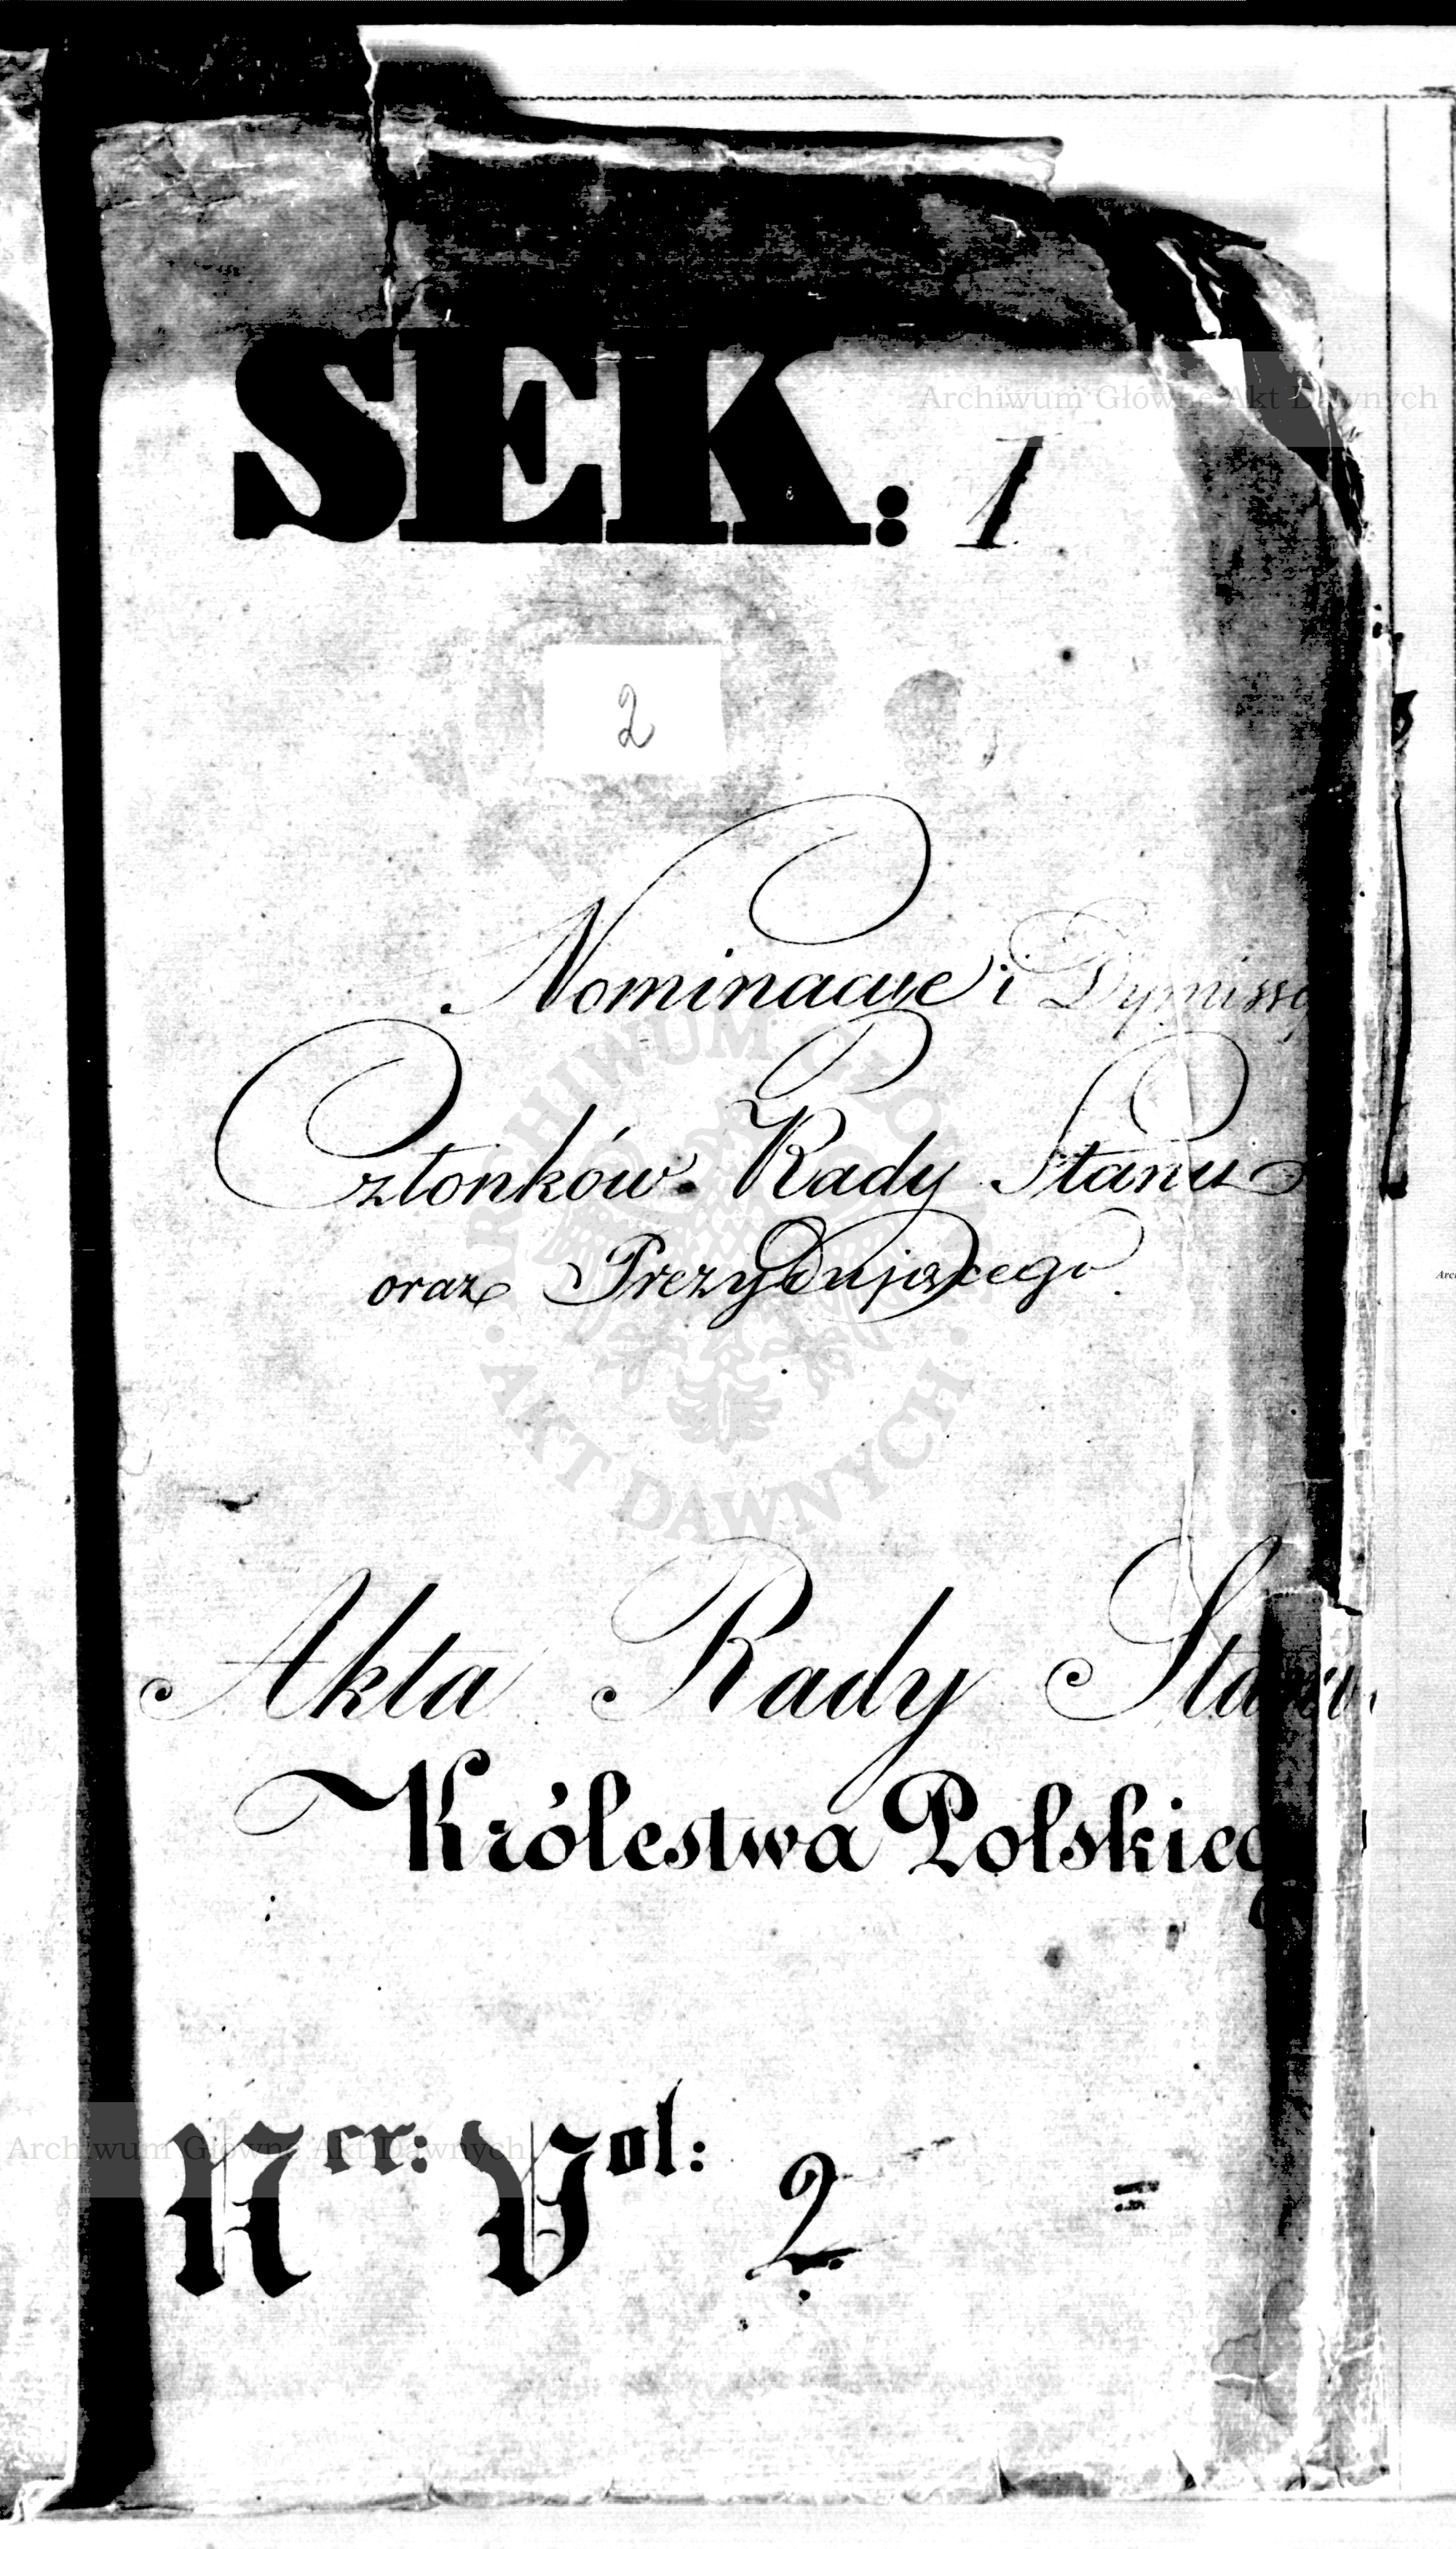 SEK: 1
Archiwum Główne Akt Dawnych
2
Nominacye i Dymissy
Członków Rady Stanu
oraz Prezydującego
ARCHIWUM GŁÓWNE
AKT DAWNYCH
Akta Rady Stanu
Królestwa Polskieg
Ner: Vol: 2
Archiwum Główne Akt Dawnych